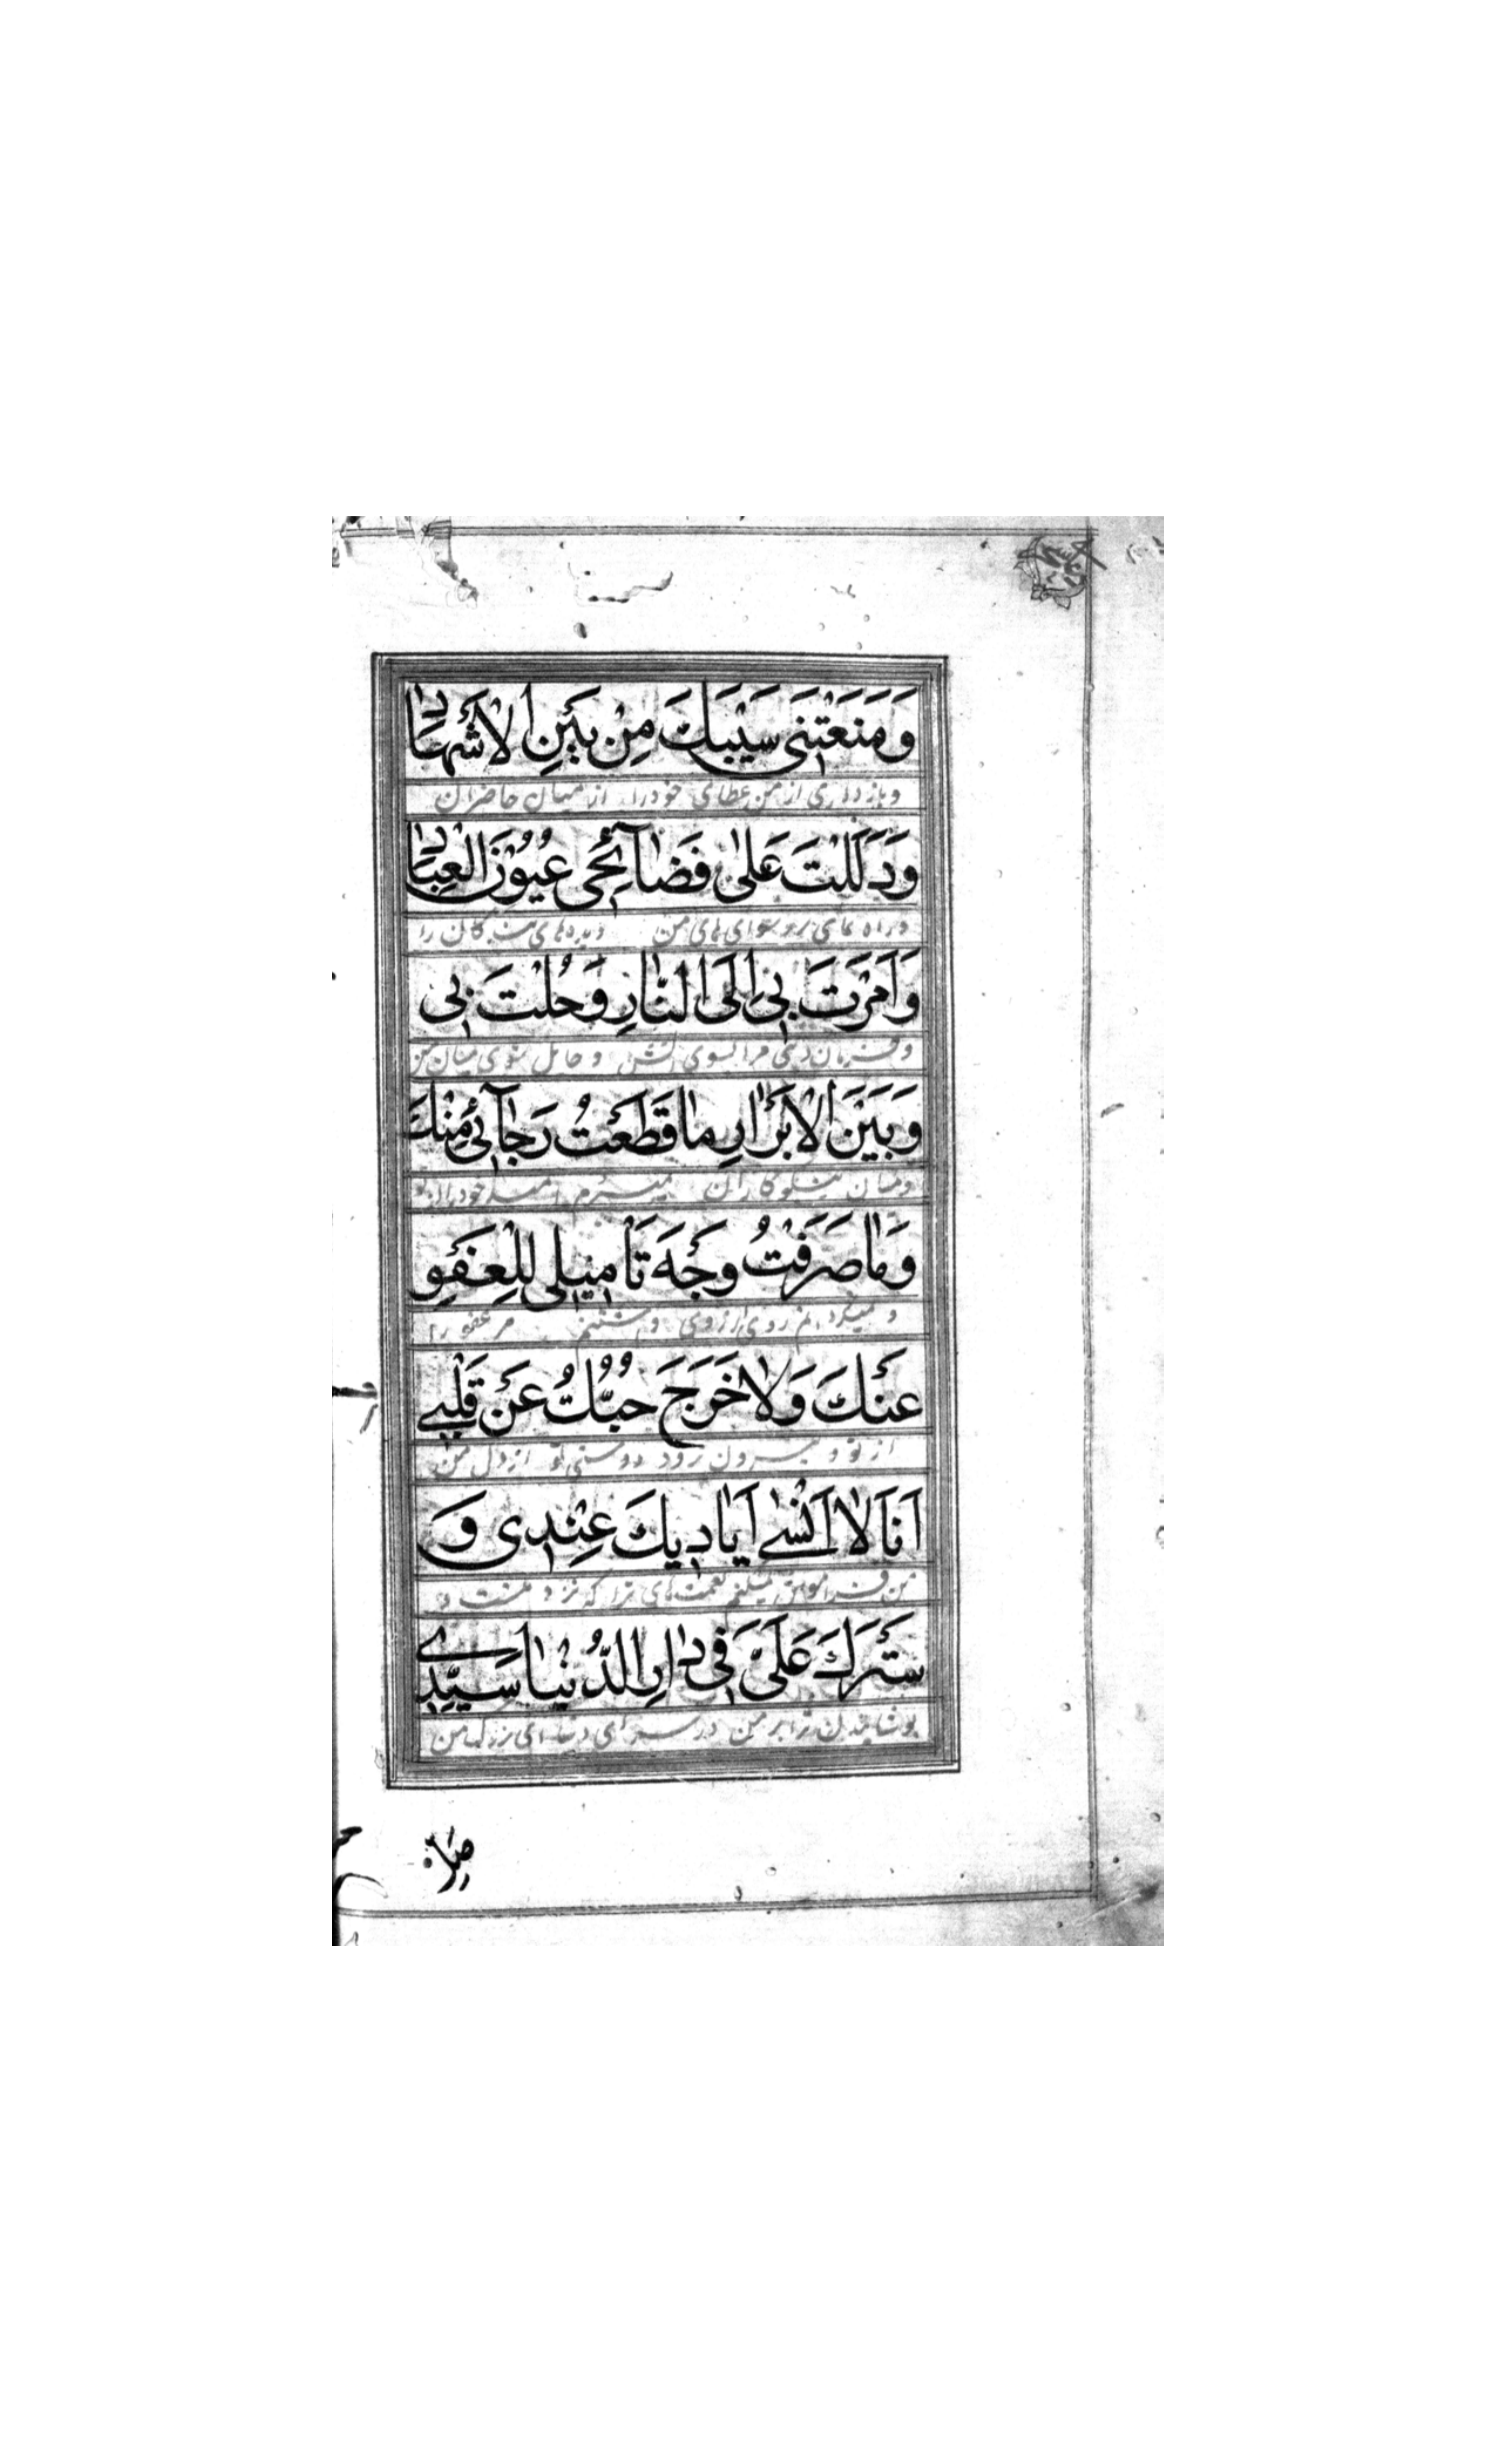 وَمَنَعْتَنی سَیْبَكَ مِنْ بَیْنِ الْاَشْهٰادِ
و بازداری از من عطای خود را از میان حاضران
وَدَلَلْتَ عَلیٰ فَضٰآئِحی عُیُوْنَ الْعِبٰادِ
و راه نمای بر رسوای های من دیده های بندکان را
وَاَمَرْتَ بی اِلَی النّٰارِ وَحُلْتَ بَی
و فرمان دهی مرا بسوی آتش و حایل شوی میان من
وَبَیْنَ الْاَبْرٰارِ مٰاقَطَعْتُ رَجٰآئی مِنْكَ
و میان نیکوکاران نمیبرم امید خود را از تو
وَمٰاصَرَفْتُ وَجْهَ تَاْمیلی لِلْعَفْوِ
و نمیکردانم روی آرزوی مر عفو را
عَنْكَ وَلٰاخَرَجَ حُبُّكَ عَنْ قَلْبی
از تو و بیرون نرود دوستی تو از دل من
اَنَا لٰا اَنْسٰی اَیٰادِیكَ عِنْدِی وَ
من فراموش نمیکنم نعمت های ترا که نزد منست و
سَتْرَكَ عَلَیَّ فی دٰارِ الدُّنْیٰا سَیِّدِی
پوشانیدن ترا بر من در سرای دنیا ای بزرک من
صل